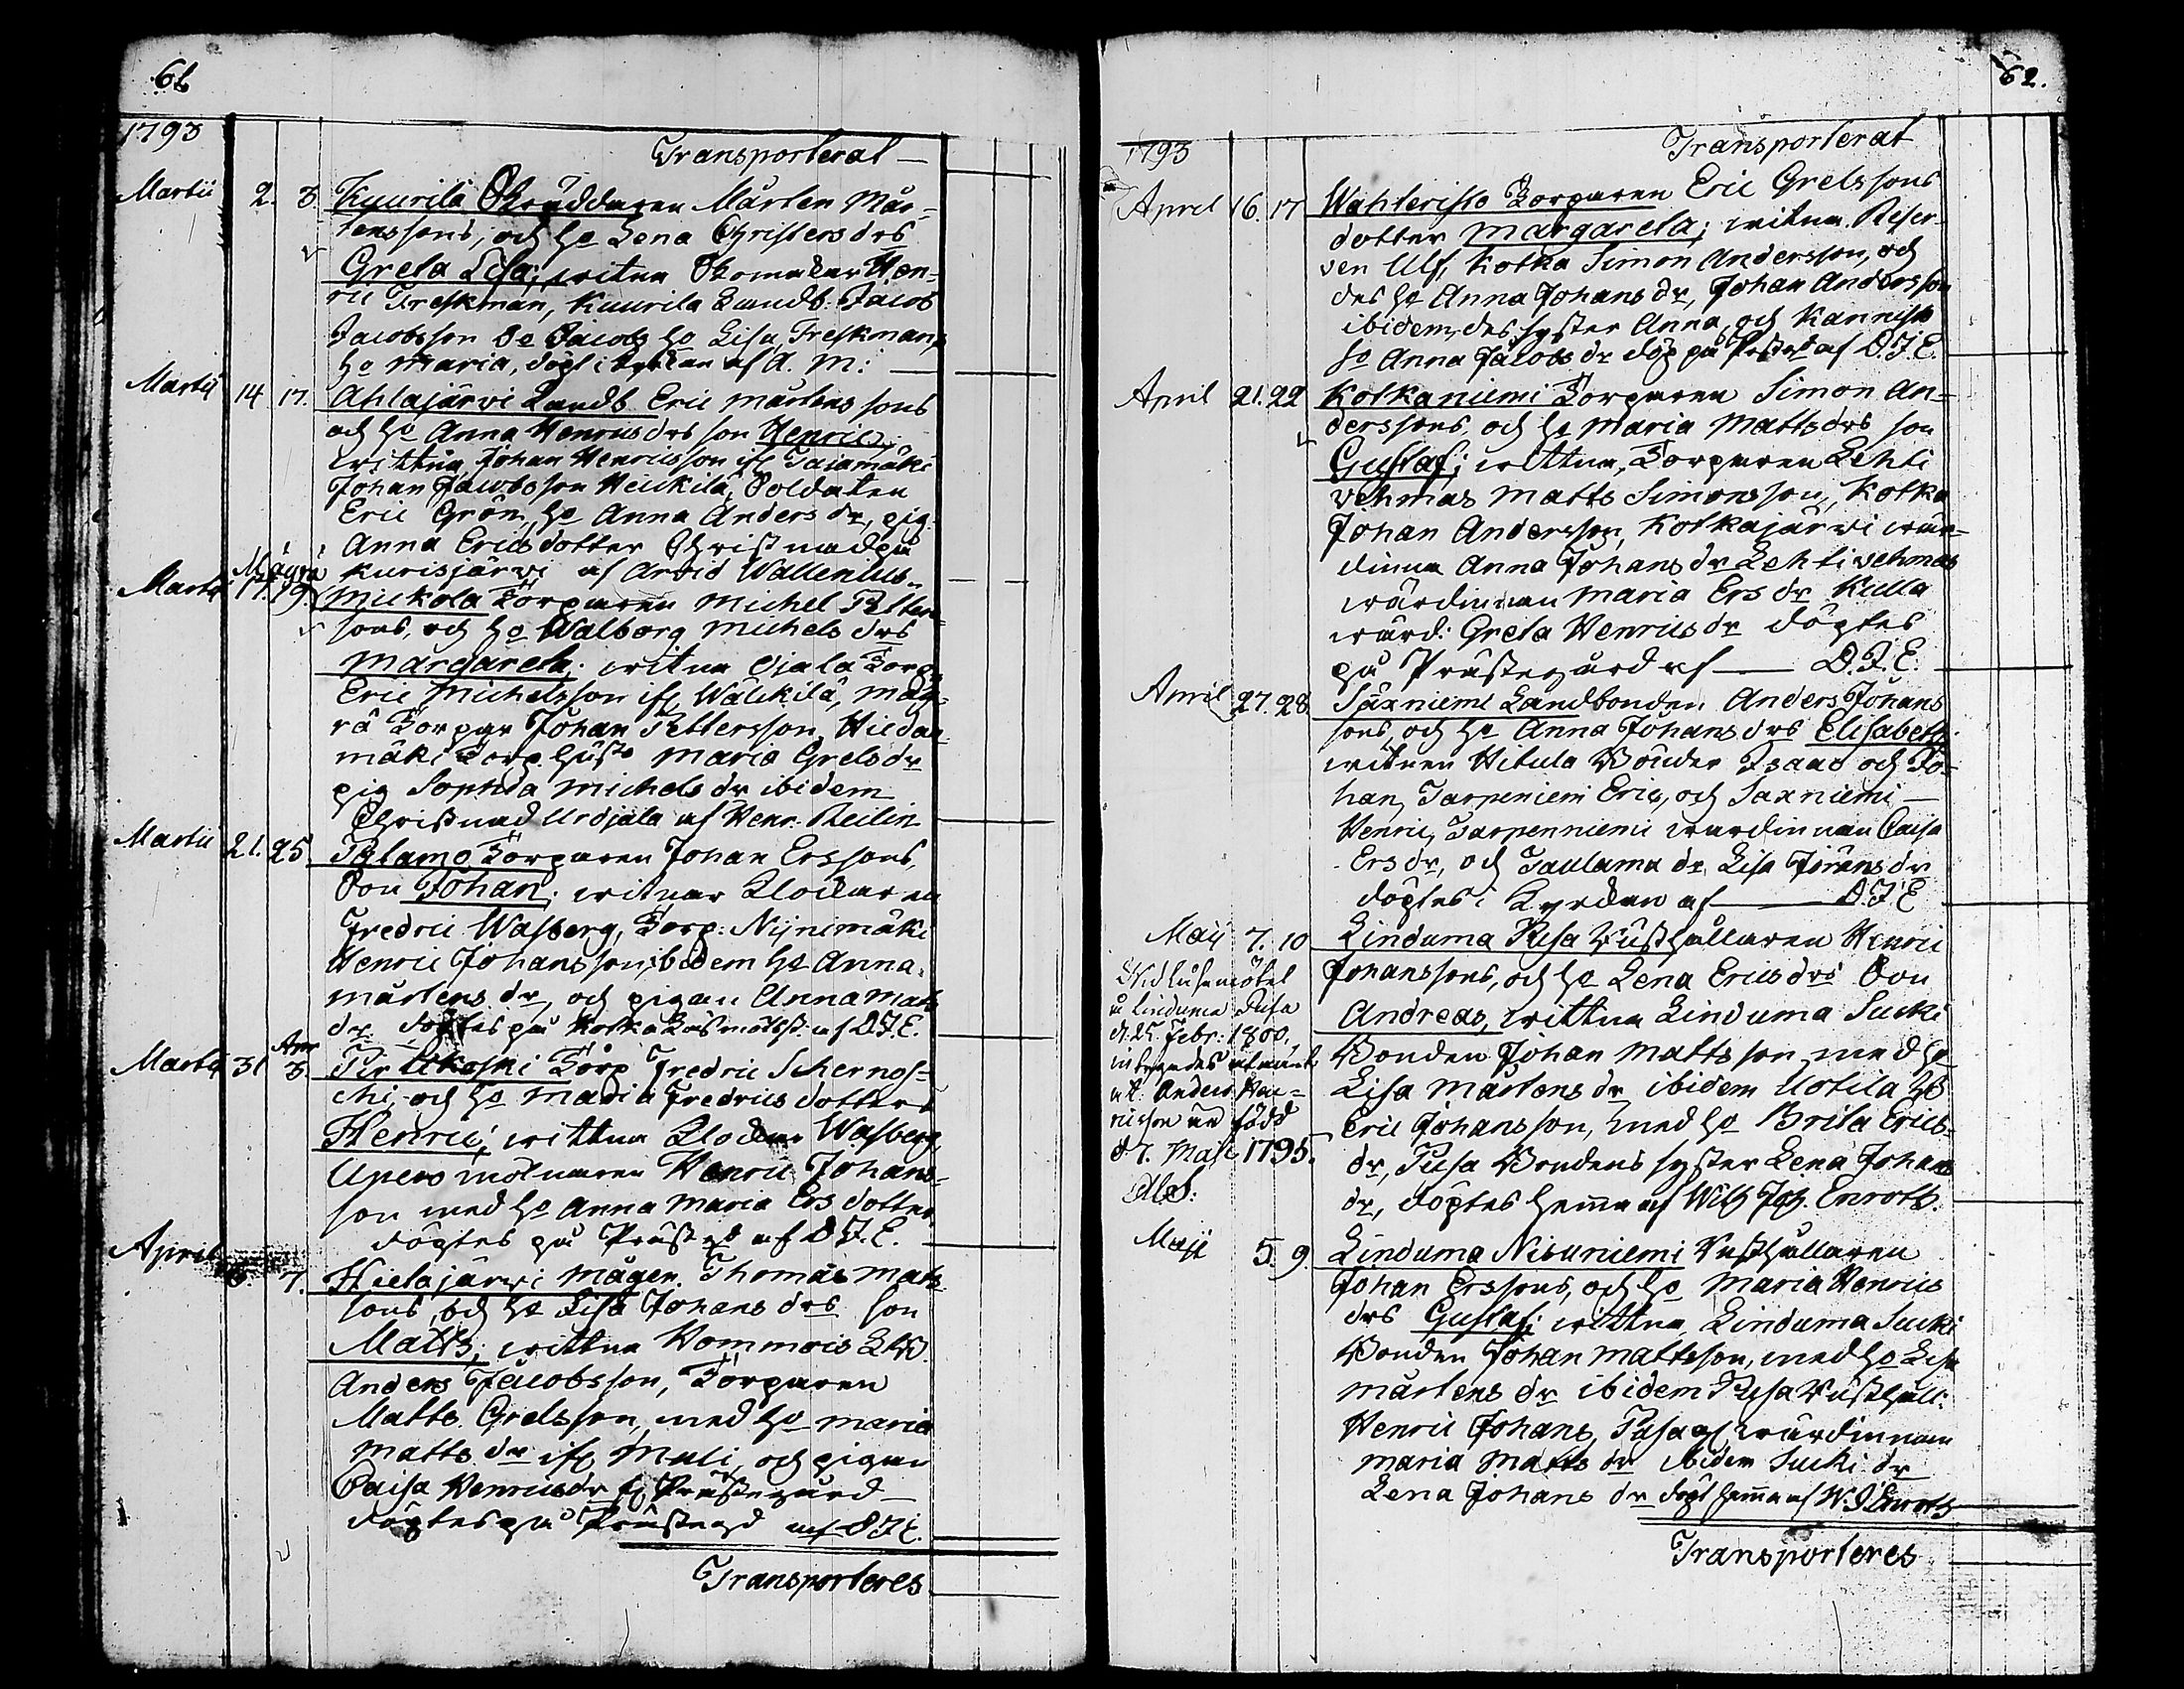 61
1793
Transporterat
Martii 2. 3 Kuurila Skräddaren Mårten Mår-
tenssons, och ho Lena Christersdrs
Greta Lisa; witna Skomakar Hen-
ric Freskman, Kuurila Landb: Jacob
Jacobsson Jacobs ho Lisa, Freskmans
ho Maria, döpt i kyrkan af A. M:
Martii 14 17. Ahlajärvi Landb. Eric Mårtens sons
och ho Anna Henricsdrs son Henric,
wittna Johan Henricsson ifr Tajamäki
Johan Jacobsson Heikilä, Soldaten
Eric Grön, ho Anna Anders dr, pig.
Anna Ericsdotter Christnad på
Kurisjärvi af Arvid Wallenius
Martii 17. 19. Mägrä Mickola Torparen Michel Petters
sons, och ho Walborg Michels drs
Margareta; witna Ojala Torp.
Eric Michelsson ifr Wälikilä, Mäg-
rä Torpar Johan Pettersson, Hiedan
mäki Torp. hust. Maria Grelsdr
pig Sophia Michels dr ibidem
Christnad Urdjala af Henr. Reilin
Martii 21. 25 Palamo Torparen Johan Erssons,
Son Johan; witnar Klockaren
Fredric Wasberg, Torp: Nijnimäki
Henric Johansson, ibidem ho Anna
Mårtens dr, och pigan Anna Mats
dr döptes på Kotka af D.J.E.
Martii 31 Apr 3. Pirttikoski Torp Fredric Schernos-
chi, och ho Maria Fredricsdotters
Henric; wittna Klockar Wasberg,
Upero mölnaren Henric Johans-
son med ho Anna Maria Ersdotter
döptes på Prästgd af D.J.E.
April 6. 7. Hietajärvi Mågen Thomas Mats
sons, och ho Lisa Johans drs son
Matts; wittna Kommois
Anders Jacobsson, Torparen
Matts Grelsson, med ho Maria
Matts dr ifr Muli, och pigan
Caisa Henricsdr fr Prästegård
döptes på Prästegd af DJE.
Transporteres
62.
1793
Transporterat
April 16. 17 Wahteristo Torparen Eric Grelssons
dotter Margareta; witna Reser-
ven Ulf, Kotka Simon Andersson, och
des ho Anna Johans dr, Johan Andersson
ibidem, des syster Anna, och Kannisto
ho Anna Jacobs dr döp på Prstgd af D.J.E.
April 21. 22 Kotkaniemi Torparen Simon An-
derssons och ho Maria Mattsdrs son
Gustaf; wittna, Torparen Lehti
vehmas Matts Simonsson, Kotka
Johan Andersson, Kotkajärvi wär-
dinna Anna Johans dr Lehtivehmas
wärdinnan Maria Ers dr Kulla
wärd: Greta Henrics dr döptes
på Prästegård af D.J.E.
April 27. 28. Saxniemi Landbonden Anders Johans
sons, och ho Anna Johans drs Elisabeth
witnen Hitula Bönder Isaac och Jo-
han, Tarpeniemi Eric, och Saxniemi
Henric, Tarpenniemi wärdinnan Caisa
Ers dr, och Taulama dr Lisa Jörans dr
döptes i Kyrckan af D.J.E
Maij 7. 10 Linduma Pusa Rusthållaren Henric
Johanssons, och ho Lena Ericsdrs Son
Andreas, wittna Linduma Sucki
Bonden Johan Matts son med ho
Lisa Mårtens dr ibidem Uotila
Eric Johansson, med ho Brita Erics-
dr, Pusa Bondens syster Lena Johans
dr, döptes hema af Wilh Joh. Enroth.
Wid husmötet
i Linduma Pusa
d. 25 Febr: 1800,
at Anders Hen-
ricson är född
d 7. Maji 1795.
Maji 5. 9. Linduma Nisuniemi Rusthållaren
Johan Erssons, och ho Maria Henrics
drs Gustaf; wittna Linduma Sucki
Bonden Johan Mattsson, med ho Lisa
Mårtens dr ibidem Pusa Rusthåll:
Henric Johans, Pusa wärdinnan
Maria Matts dr ibidem Sucki dr
Lena Johans dr döpt hema af W. J Enroth
Transporteres